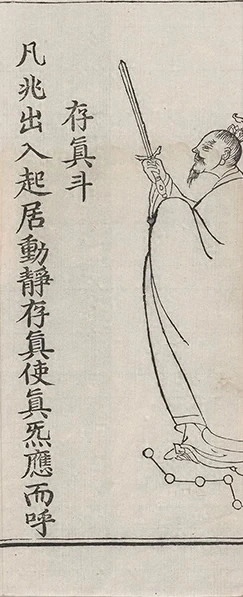 存眞斗
凡兆出入起居動靜存眞使眞炁應而呼